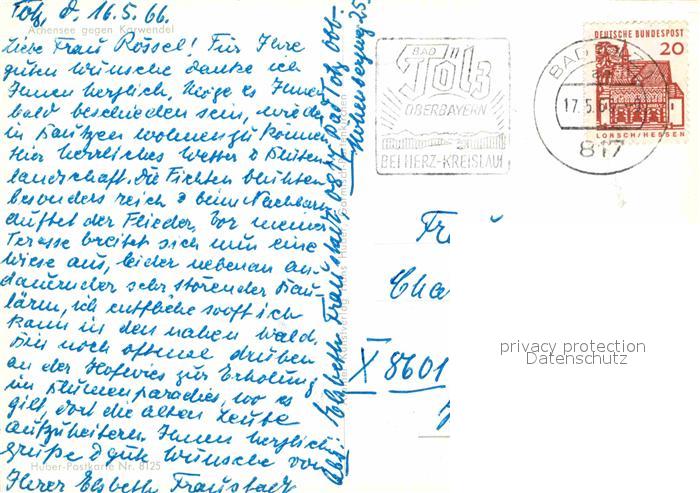 Tölz, d. 16.5.66.
Achensee gegen Karwendel
Liebe Frau Rössel! Für Ihre
guten Wünsche danke ich
Ihnen herzlich. Möge es Ihnen
bald beschieden sein, wieder
in Bautzen wohnen zu können.
Hier herrliches Wetter & Blüten-
landschaft. Die Fichten blühten
besonders reich & beim Nachbarn
duftet der Flieder. Vor meiner
Terasse breitet sich nun eine
Wiese aus, leider nebenan an-
dauernder sehr störender Bau-
lärm, ich entfliehe sooft ich
kann in den nahen Wald.
Bin noch oftmal drüben
an der zur Erholung
im Blumenparadies, wo es
gilt, dort die alten Leute
aufzuheitern. Ihnen herzliche
Grüße & gute Wünsche von
Huber-Postkarte Nr. 8125
Ihrer Elsbeth Fraustadt
Abs. Elsbeth Fraustadt, 817 Bad Tölz Obb.
BAD
Tölz
OBERBAYERN
BEI HERZ-KREISLAUF
BAD
17.5.6
817
DEUTSCHE BUNDESPOST
20
LORSCH/HESSEN
Fr
Cha
X 8601
privacy protection
Datenschutz